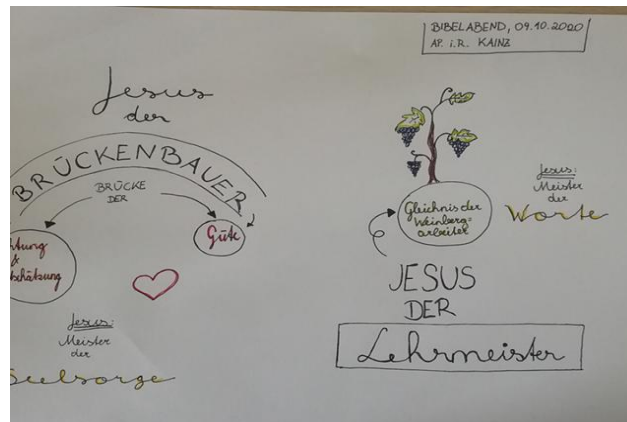 BIBELABEND, 09.10.2020
AP. i.R. KAINZ
Jesus
der
BRÜCKENBAUER
BRÜCKE
DER
Güte
&
Jesus:
Meister
der
Seelsorge
Gleichnis der
Weinberg=
arbeiter
Jesus:
Meister
der
Worte
JESUS
DER
Lehrmeister